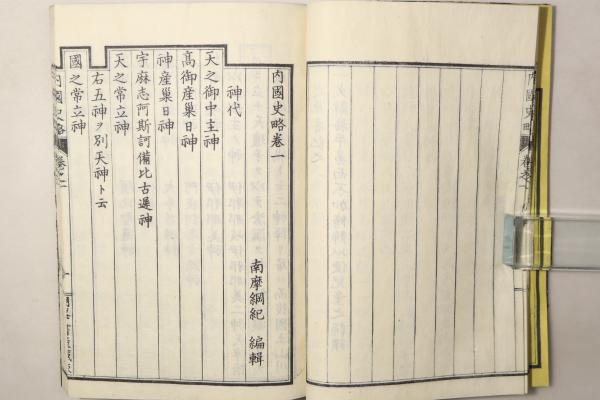 內國史略卷一
南摩綱紀 編輯
神代
天之御中主神
高御產巢日神
神產巢日神
宇麻志阿斯訶備比古遲神
天之常立神
右五神ヲ別天神ト云
國之常立神
內國史略 卷之一
內國史略 卷之一